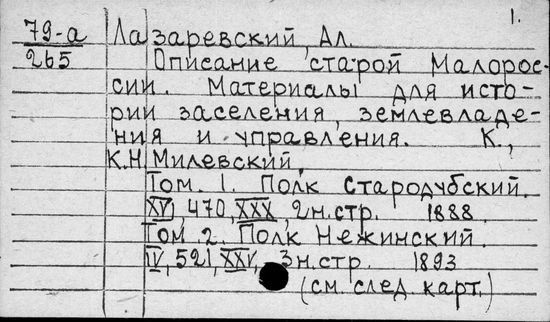 1.
79-а Лазаревский, Ал.
265 Описание старой Малорос-
сии. Материалы для исто-
рии заселения, землевладе-
ния и управления. К.,
К.Н. Милевский,
Том. 1. Полк Стародубский.
XV, 470, XXX, 2 н. стр. 1888.
Том. 2. Полк Нежинский.
IV, 521, XXV, 3 н. стр. 1893
(см. след. карт.)